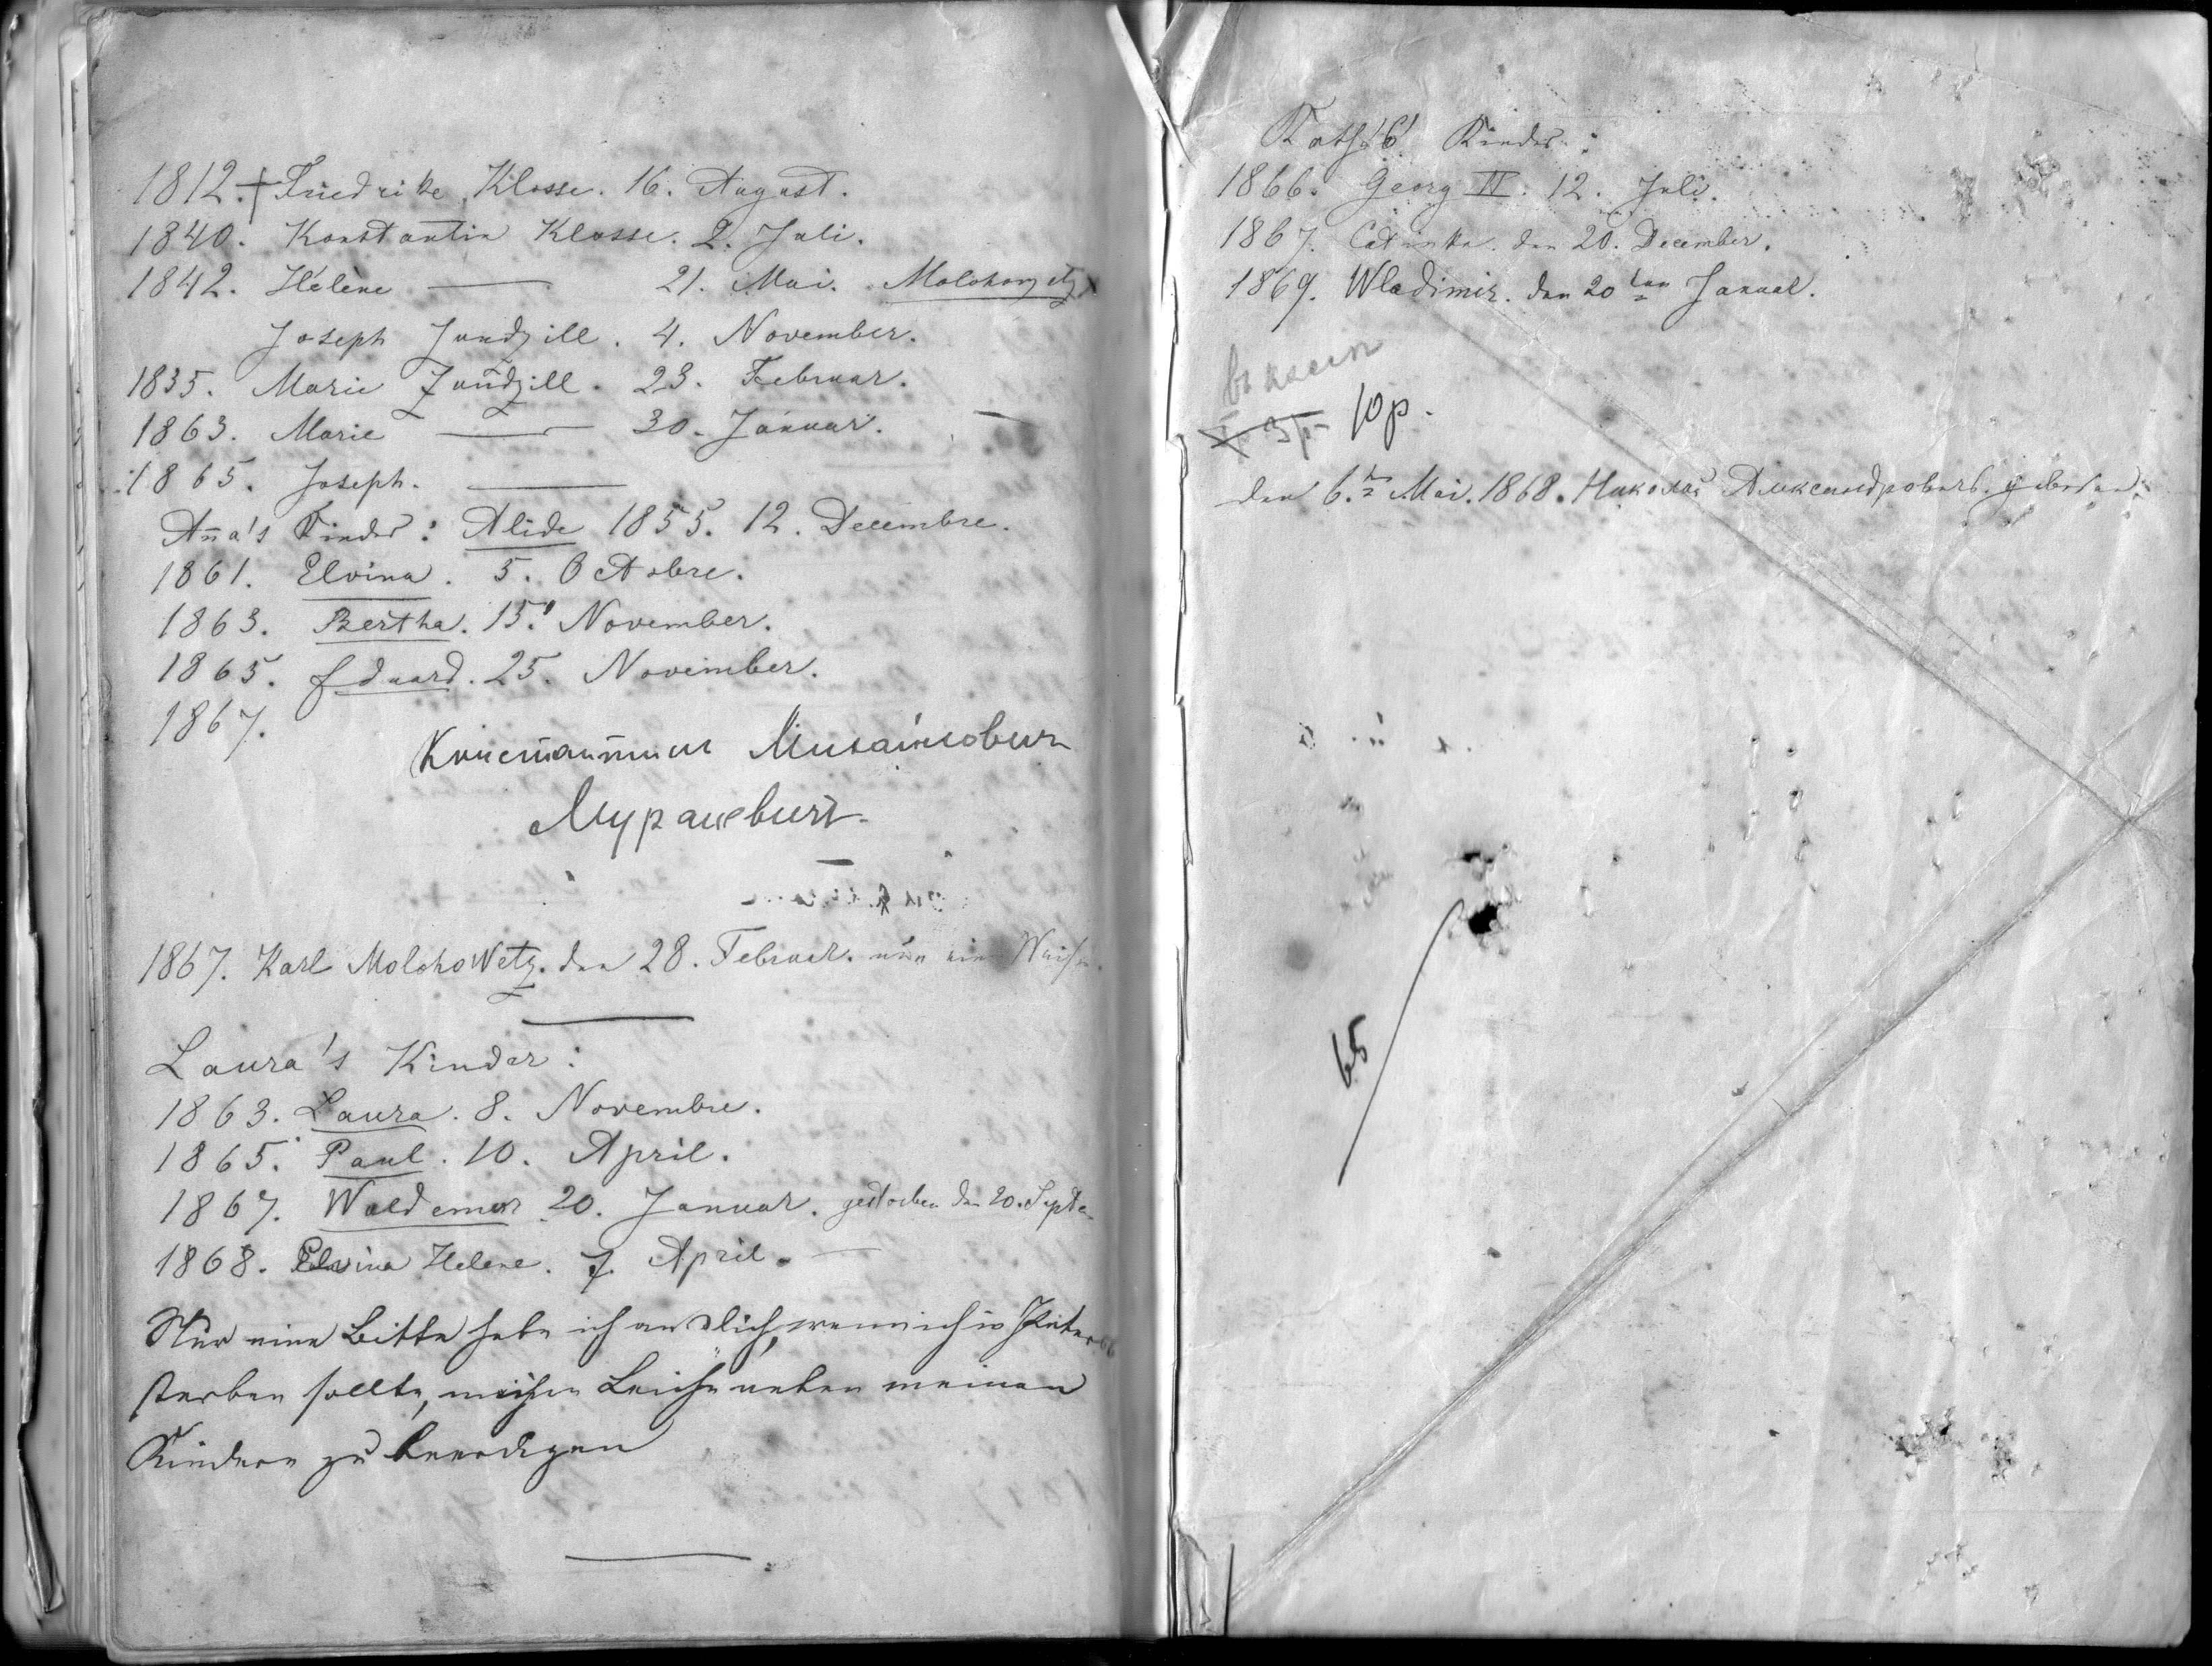 1812.† Friedrike Klosse. 16. August.
1840. Konstantin Klosse. 2. Juli.
1842. Hélène — 21. Mai. Molohowetz
Joseph Jundzill. 4. November.
1835. Marie Jundzill. 23. Februar.
1863. Marie — 30. Januar. —
1865. Joseph. —
Ana's Kinder: Alide 1855. 12. Decembre.
1861. Elvina. 5. Octobre.
1863. Bertha. 15. November.
1865. Eduard. 25. November.
1867.
Константин Михайлович
Мурашевич.
1867. Karl Molohowetz. den 28. Februar.
Laura's Kinder:
1863. Laura. 8. Novembre.
1865. Paul. 10. April.
1867. Waldemar 20. Januar. gestorben den 20. Septe.
1868. Elvina Helene. 7. April. —
Nur eine Bitte habe ich endlich, wenn ich in Petersb
sterben sollte, meine Leiche neben meinen
Kindern zu beerdigen
Kinder:
1866. Georg II. 12. Juli.
1867. Catinka. den 20. December.
1869. Wladimir. den 20ten Januar.
3р 10р.
den 6. Mai. 1868. Николай Александровичъ geboren.
65